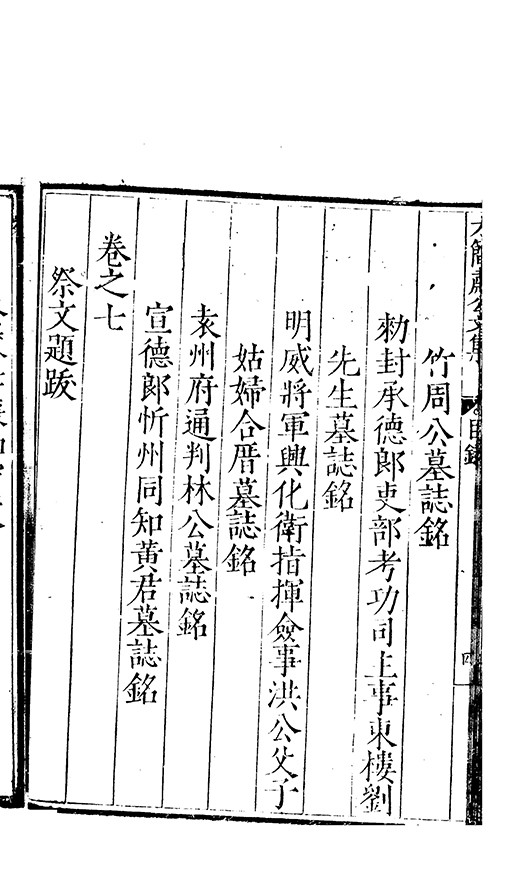 竹周公墓誌銘
勑封承德郎吏部考功司主事東樓劉
先生墓誌銘
明威將軍興化衛指揮僉事洪公父子
姑婦合厝墓誌銘
袁州府通判林公墓誌銘
宣德郎忻州同知黃君墓誌銘
卷之七
祭文題跋